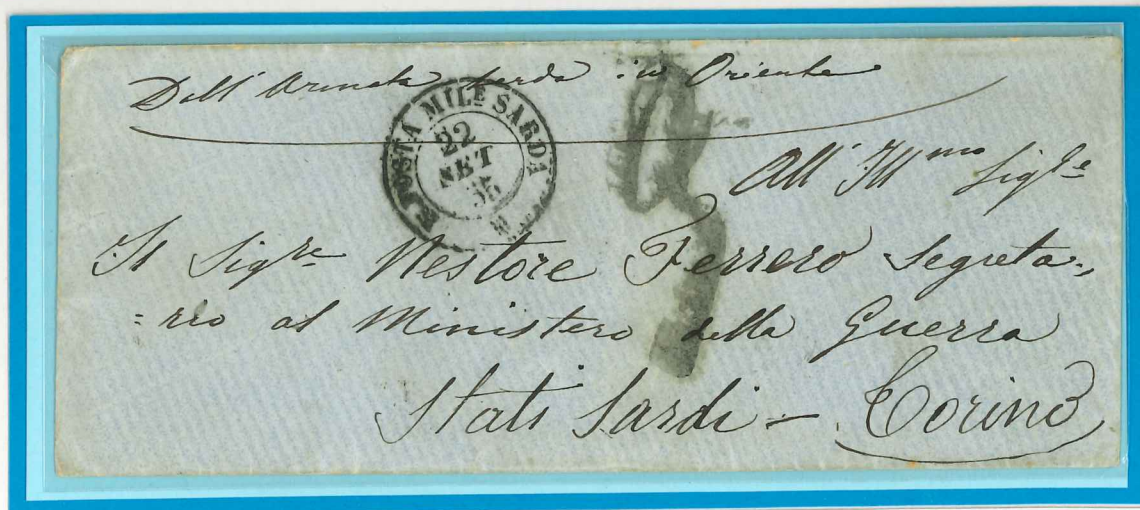 Dall' Armata Sarda in Oriente
R. POSTA MILE SARDA
22
SET
55
All' Illmo Sigre
Il Sigre Nestore Ferrero Segreta-
=rio al Ministero della Guerra
Stati Sardi - Torino